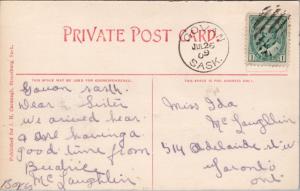 PRIVATE POST CARD.
GOVAN
JUL 26
09
SASK.
THIS SPACE MAY BE USED FOR CORRESPONDENCE.
THIS SPACE IS FOR ADDRESS ONLY.
Govan sask.
Dear Sister
we arrived hear
& are having a
good time from
Beatrice
McLaughlin
Miss Ida
McLaughlin
514 Adelaide st w
Toronto
Ont
Published for J. H. Cavanagh, Strassburg, Sask.